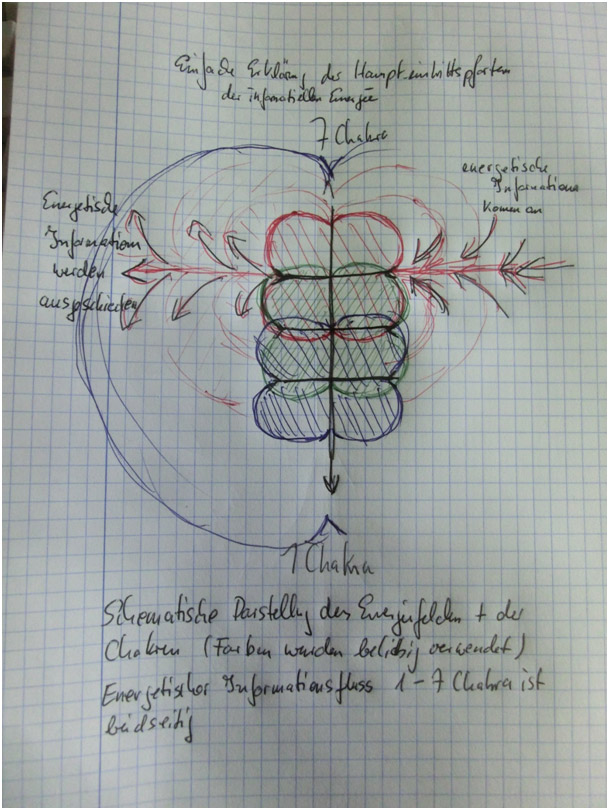 Einfache Erklärung der Haupteintrittspforten
der informatiellen Energie
7 Chakra
energetische
Informations
kommen an
Energetische
Informationen
werden
ausgeschieden
1 Chakra
Schematische Darstellung des Energiefeldes + der
Chakren (Farben wurden beliebig verwendet)
Energetischer Informationsfluss 1-7 Chakra ist
beidseitig